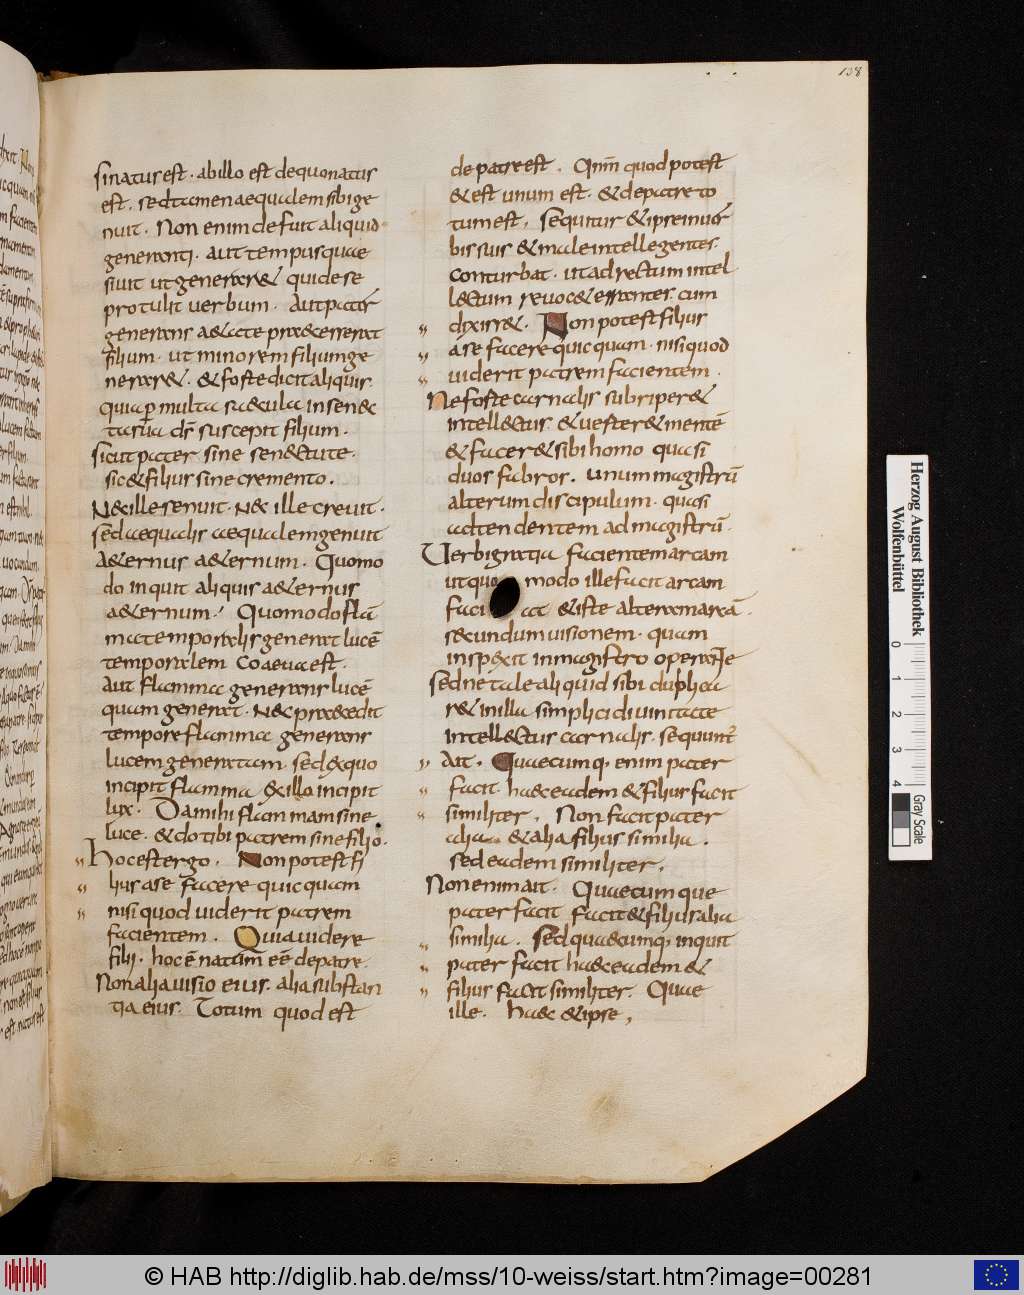 138
sinatus est. ab illo est de quo natus
est. sed tamen aequalem sibi ge
nuit. Non enim defuit aliquid
generanti. aut tempus quae
sivit ut generar& qui de se
protulit verbum. Aut pater
generans a&ate praecesserat
filium. ut minorem filium ge
nerar&. & fo&te dicit aliquis.
quia p multa saecula in senec
ta sua ds suscepit filium.
sicut pater sine senectute.
sic & filius sine cremento.
Nec ille senuit. nec ille crevit.
sed aequalis aequalem genuit
a&ernus a&ernum. Quomo
do inquit aliquis a&ernus
a&ernum; Quomodo flā
ma temporalis generat lucē
temporalem coaeva est.
Aut flamma generans lucē
quam generat. nec praecedit
tempore flamma generans
lucem generatam. sed ex quo
incipit flamma ex illo incipit
lux. Da mihi flammam sine
luce. & do tibi patrem sine filio.
Hoc est ergo. Non potest fi
lius a se facere quicquam
nisi quod viderit patrem
facientem. Quia videre
filii. hoc ē natum eē de patre.
Non alia visio eius. alia substan
tia eius. Totum quod est
de patre est. Omn quod potest
& est unum est. & de patre to
tum est. Sequitur & ipse in ver
bis suis & male intellegentes
conturbat. ut ad rectum intel
lectum revoc& errantes. cum
dixiss&. Non potest filius
a se facere quicquam. nisi quod
viderit patrem facientem.
Ne forte carnalis subriper&
intellectus. & everter& mentē
& facer& sibi homo quasi
duos fabros. unum magistrū
alterum discipulum. quasi
adtendentem ad magistrū.
Verbi gratia facientem arcam
ut quo modo ille facit arcam
faci at & iste alteram arcā.
secundum visionem. quam
inspexit in magistro operante
sed ne tale aliquid sibi duplica
r& in illa simplici divinitate
intellectus carnalis. sequunt
Ait. Quaecumq; enim pater
facit. haec eadem & filius facit
similiter. Non facit pater
alia & alia filius similia.
sed eadem similiter.
Non enim ait. Quaecumque
pater facit facit & filius alia
similia. Sed quaecumq; inquit
pater facit haec eadem &
filius facit similiter. Quae
ille. haec & ipse;
Herzog August Bibliothek
Wolfenbüttel
0 1 2 3 4
Gray Scale
© HAB http://diglib.hab.de/mss/10-weiss/start.htm?image=00281